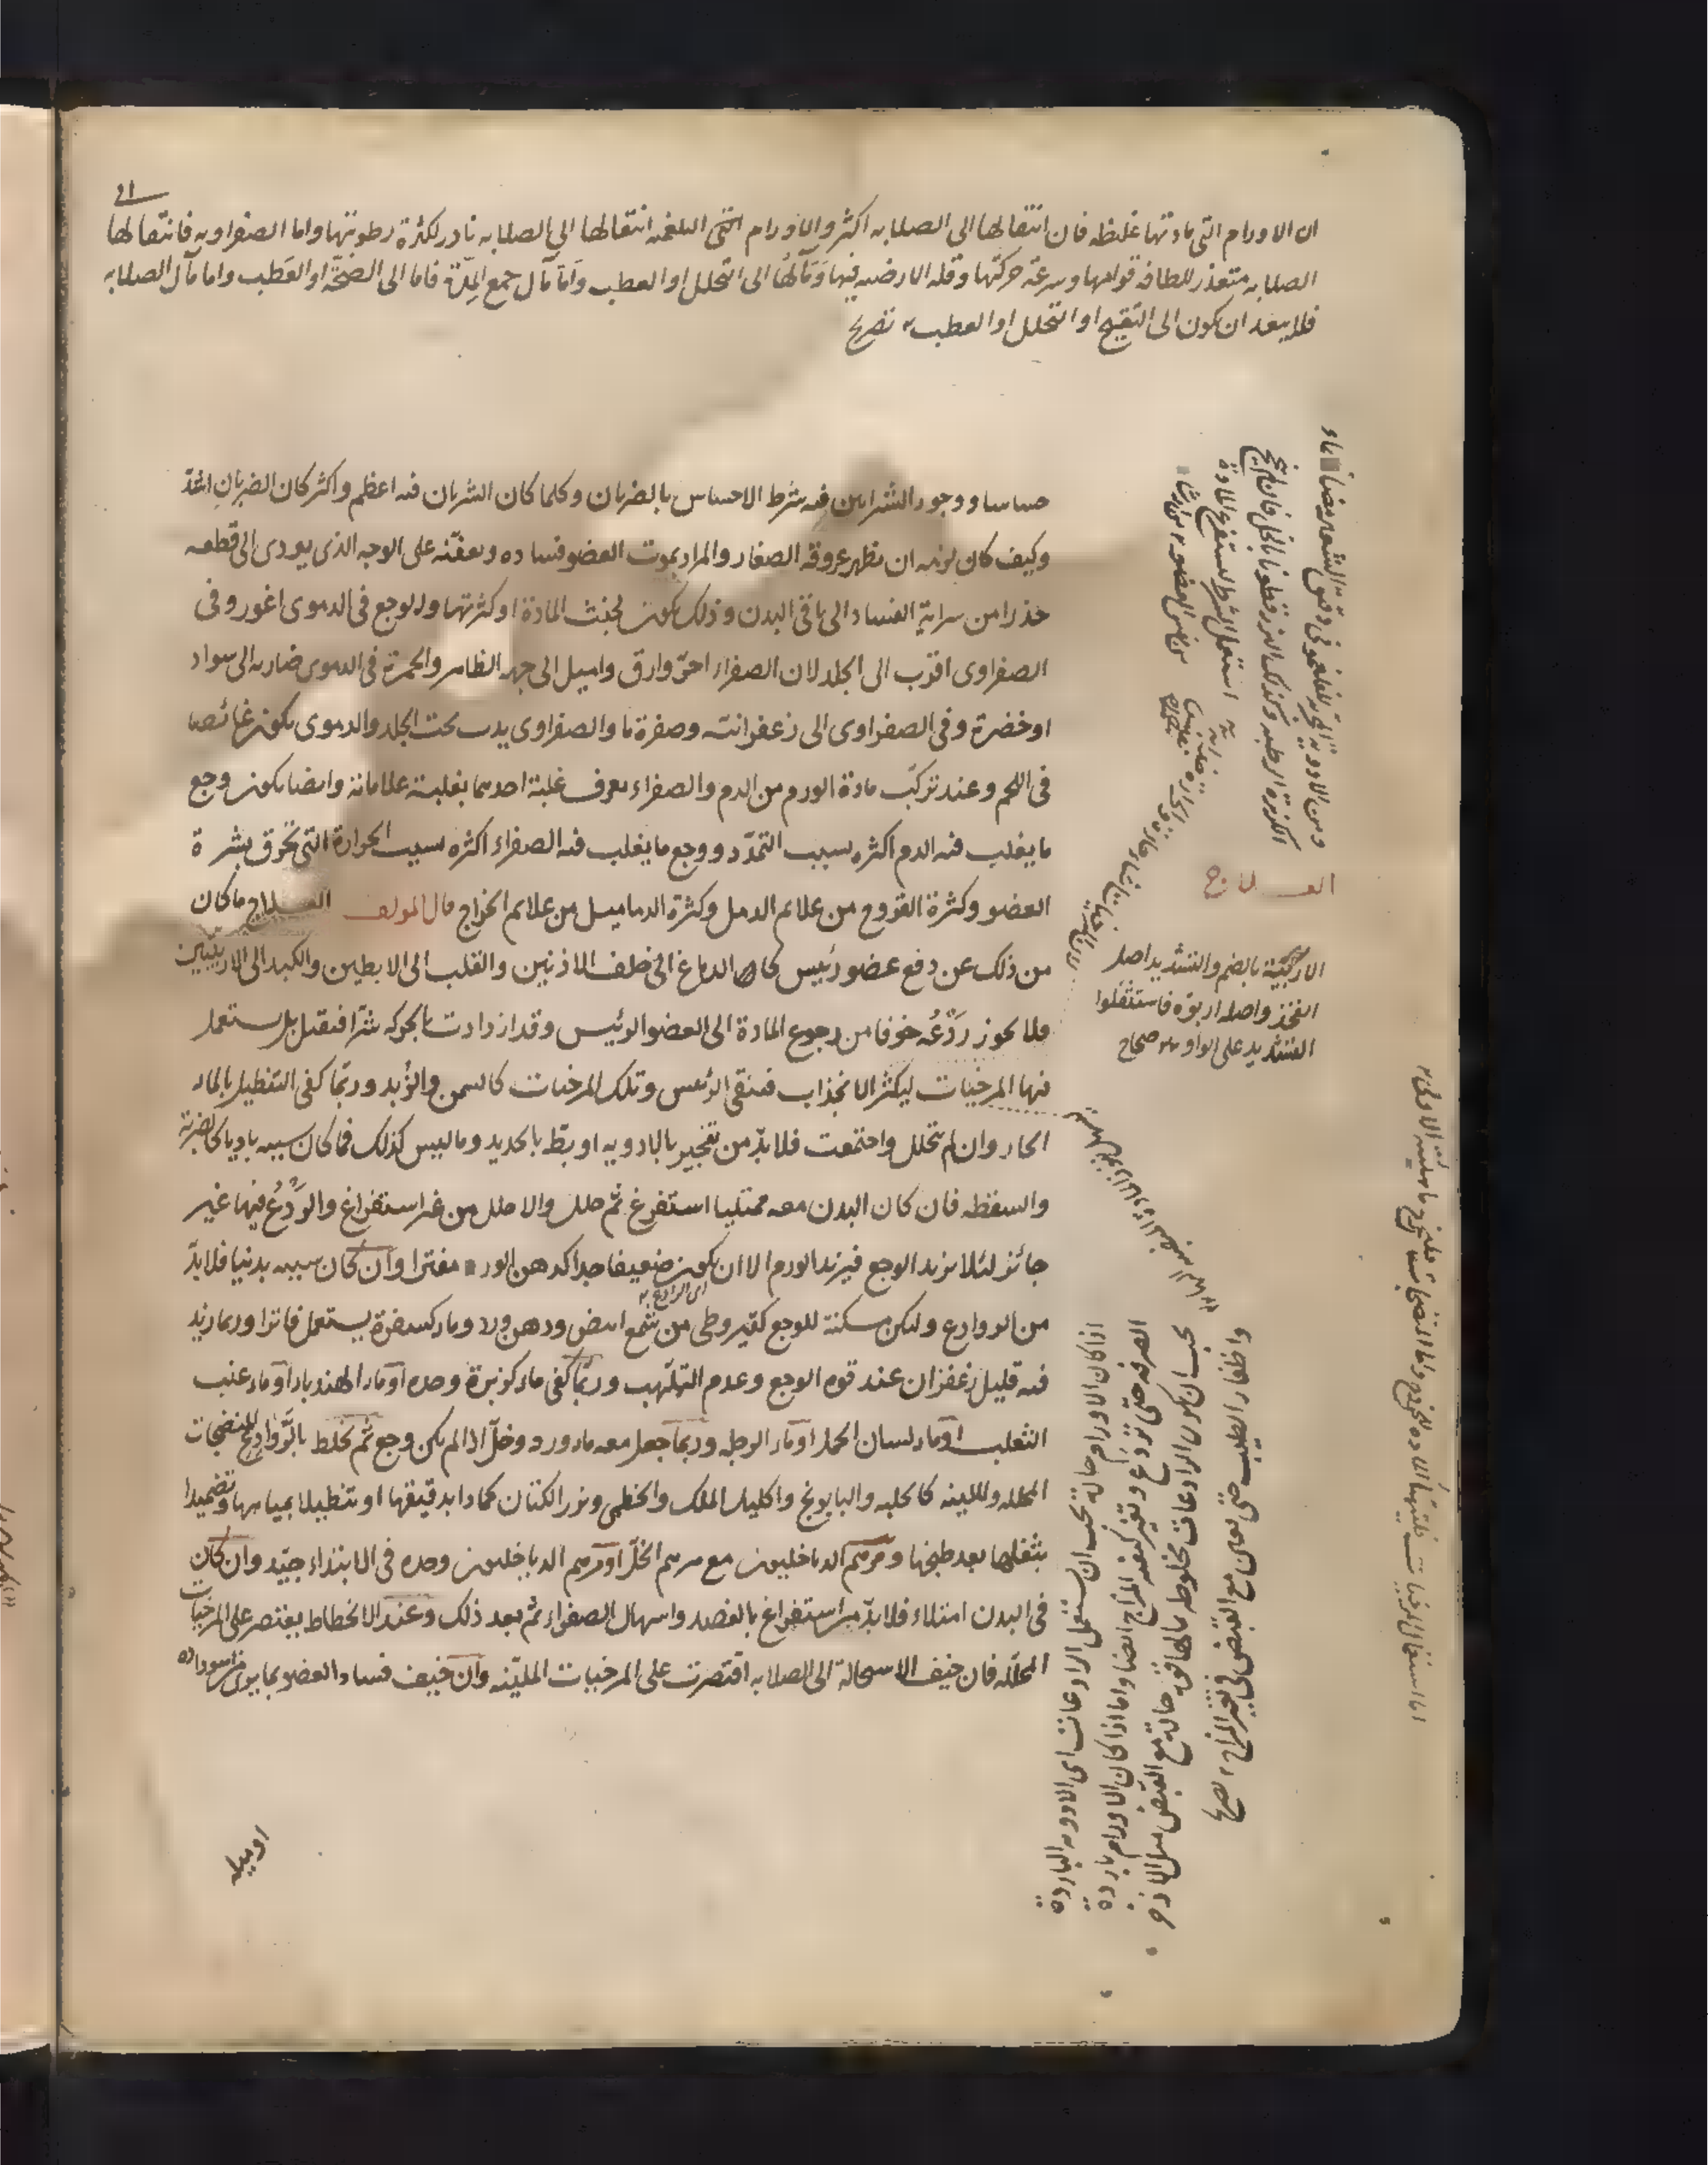 ان الاورام التى مادتها غليظه فان انتقالها الى الصلابه اكثر والاورام التى البلغمه انتقالها الى الصلابه نادر لكثرة رطوبتها واما الصفراويه فانتقالها
الصلابه متعذر للطافه قوامها وسرعة حركتها وقله الارضيه فيها ومآلها الى التحلل او العطب واما مآل جمع المدة فاما الى النضج او العطب واما مآل الصلابه
فلا يبعد ان يكون الى التقيح او التحلل او العطب
حساسا ووجود الشرايين فيه شرط الاحساس بالضربان وكلما كان الشريان فيه اعظم واكثر كان الضربان اشد
وكيف كان لونه ان يظهر عروقه الصغار والمراد بموت العضو فساده وتعفنه على الوجه الذى يودى الى قطعه
حذرا من سراية الفساد الى باقى البدن وذلك يكون لخبث المادة او كثرتها والوجع فى الدموى اغور وفى
الصفراوى اقرب الى الجلد لان الصفراء احر وارق واميل الى جهه الظاهر والحمرة فى الدموى ضاربه الى سواد
او خضرة وفى الصفراوى الى زعفرانيه وصفرة ما والصفراوى يدب تحت الجلد والدموى يكون غائصا
فى اللحم وعند تركب مادة الورم من الدم والصفراء يعرف غلبة احدهما بغلبة علاماته وايضا يكون وجع
ما يغلب فيه الدم اكثره بسبب التمدد ووجع ما يغلب فيه الصفراء اكثره بسبب الحرارة التى تحرق بشرة
العضو وكثرة القروح من علائم الدمل وكثرة الدماميل من علائم الخراج قال المولف العلاج ما كان
من ذلك عن دفع عضو رئيس كما الدماغ الى خلف الاذنين والقلب الى الابطين والكبد الى الاربيتين
فلا يجوز ردعه خوفا من رجوع المادة الى العضو الرئيس وقد ازدادت بالحركه شرا فيقتل بل يستعمل
فيها المرخيات ليكثر الانجذاب فينقى الرئيس وتلك المرخيات كالسمن والزبد وربما كفى التنطيل بالماء
الحار وان لم يتحلل واجتمعت فلا بد من تفجير بالادويه او بط بالحديد وما ليس كذلك فما كان سببه باديا كالضربة
والسقطه فان كان البدن معه ممتليا استفرغ ثم حلل والا حلل من غير استفراغ والردع فيها غير
جائز لئلا يزيد الوجع فيزيد الورم الا ان يكون ضعيفا جدا كدهن الورد مفترا وان كان سببه بدنيا فلا بد
من الروادع ولكن مسكنة للوجع كقيروطى من شمع ابيض ودهن ورد وماء كسفرة يستعمل فاترا وربما زيد
فيه قليل زعفران عند قوه الوجع وعدم التلهب وربما كفى ماء كزبرة وحده او ماء الهندباء او ماء عنب
الثعلب او ماء لسان الحمل او ماء الرجله وربما جعل معه ماء ورد وخل اذا لم يكن وجع ثم يخلط بالروادع المنضجات
المحلله والملينه كالحلبه والبابونج واكليل الملك والخطمى وبزر الكتان كمادا بدقيقها او تنطيلا بمياهها وتضميدا
بثفلها بعد طبخها ومرهم الدياخليون مع مرهم الخل او مرهم الدياخليون وحده فى الابتداء جيد وان كان
فى البدن امتلاء فلا بد من استفراغ بالفصد واسهال الصفراء ثم بعد ذلك وعند الانحطاط يقتصر على المرخيات
المحلله فان خيف الاستحالة الى الصلابه اقتصرت على المرخيات الملينه وان خيف فساد العضو بما يرى من سواده
اى الروادع
العلاج
الاربية بالضم والتشديد اصل
الفخذ واصله اربوة فاستثقلوا
التشديد على الواو صحاح
اذا كان الاورام حارة يجب ان يستعمل الرادعات اى الادويه الباردة
الصرفه حتى تردع وتغير كيفيه المزاج ايضا واما اذا كان الاورام باردة
يجب ان يكون الرادعات مخلوطه بما لها قوه حارة مع القبض مثل الاذخر
واظفار الطيب حتى يعين مع القبض فى تغير المزاج
اوميله